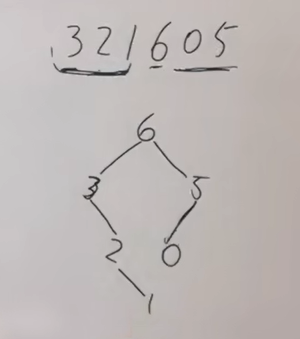 321605
6
3 5
2 0
1